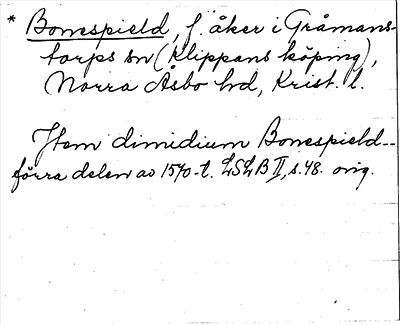 * Bonespield, f. åker i Gråmans-
torps sn (Klippans köping),
Norra Åsbo hd, Krist. l.
Item dimidium Bonespield --
förra delen av 1570-t. LSLB II, s. 48. orig.